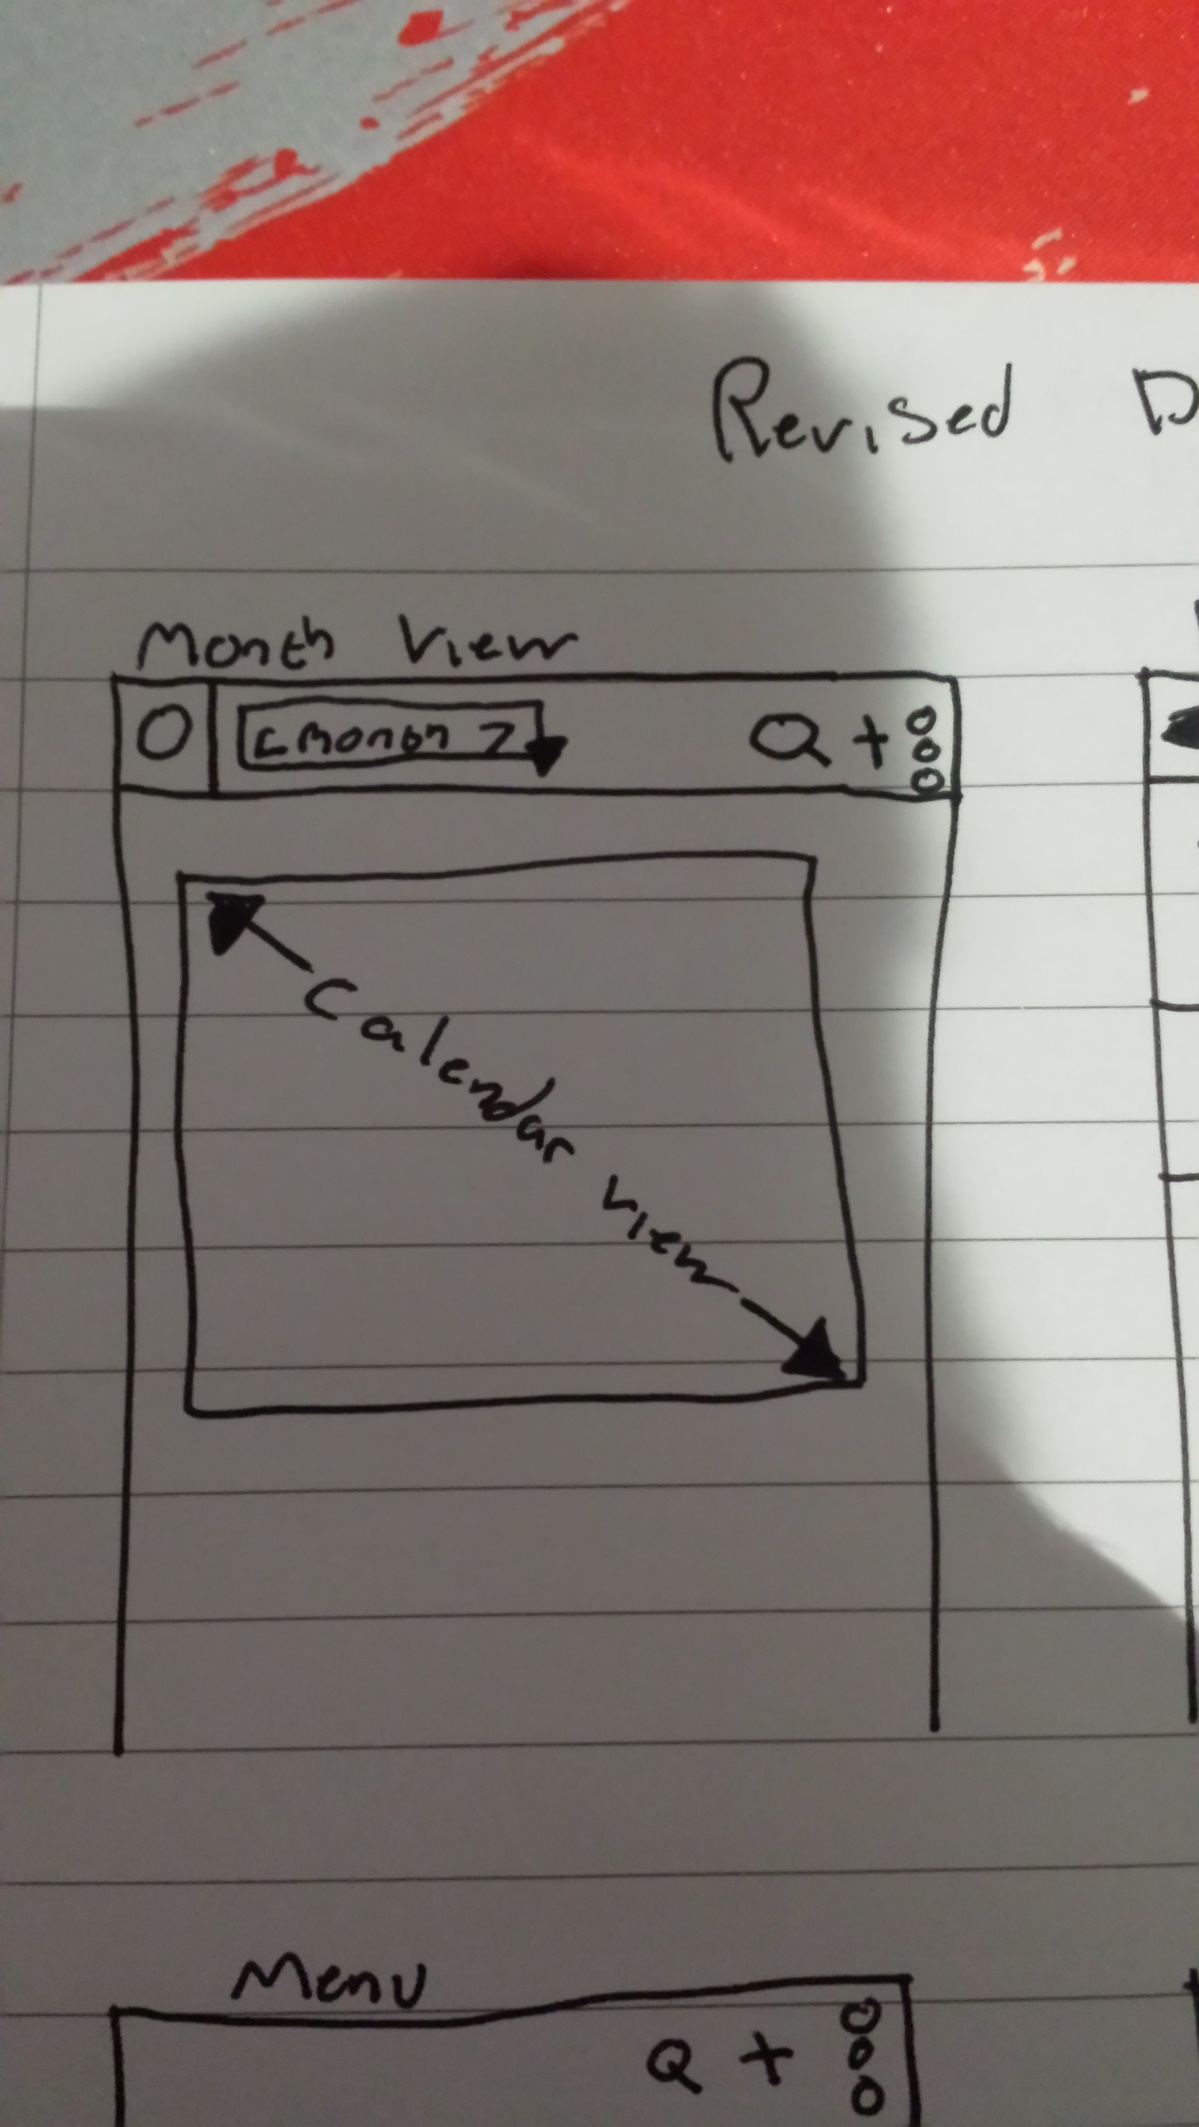 Revised D
Month View
<Month>
Calendar view
Menu